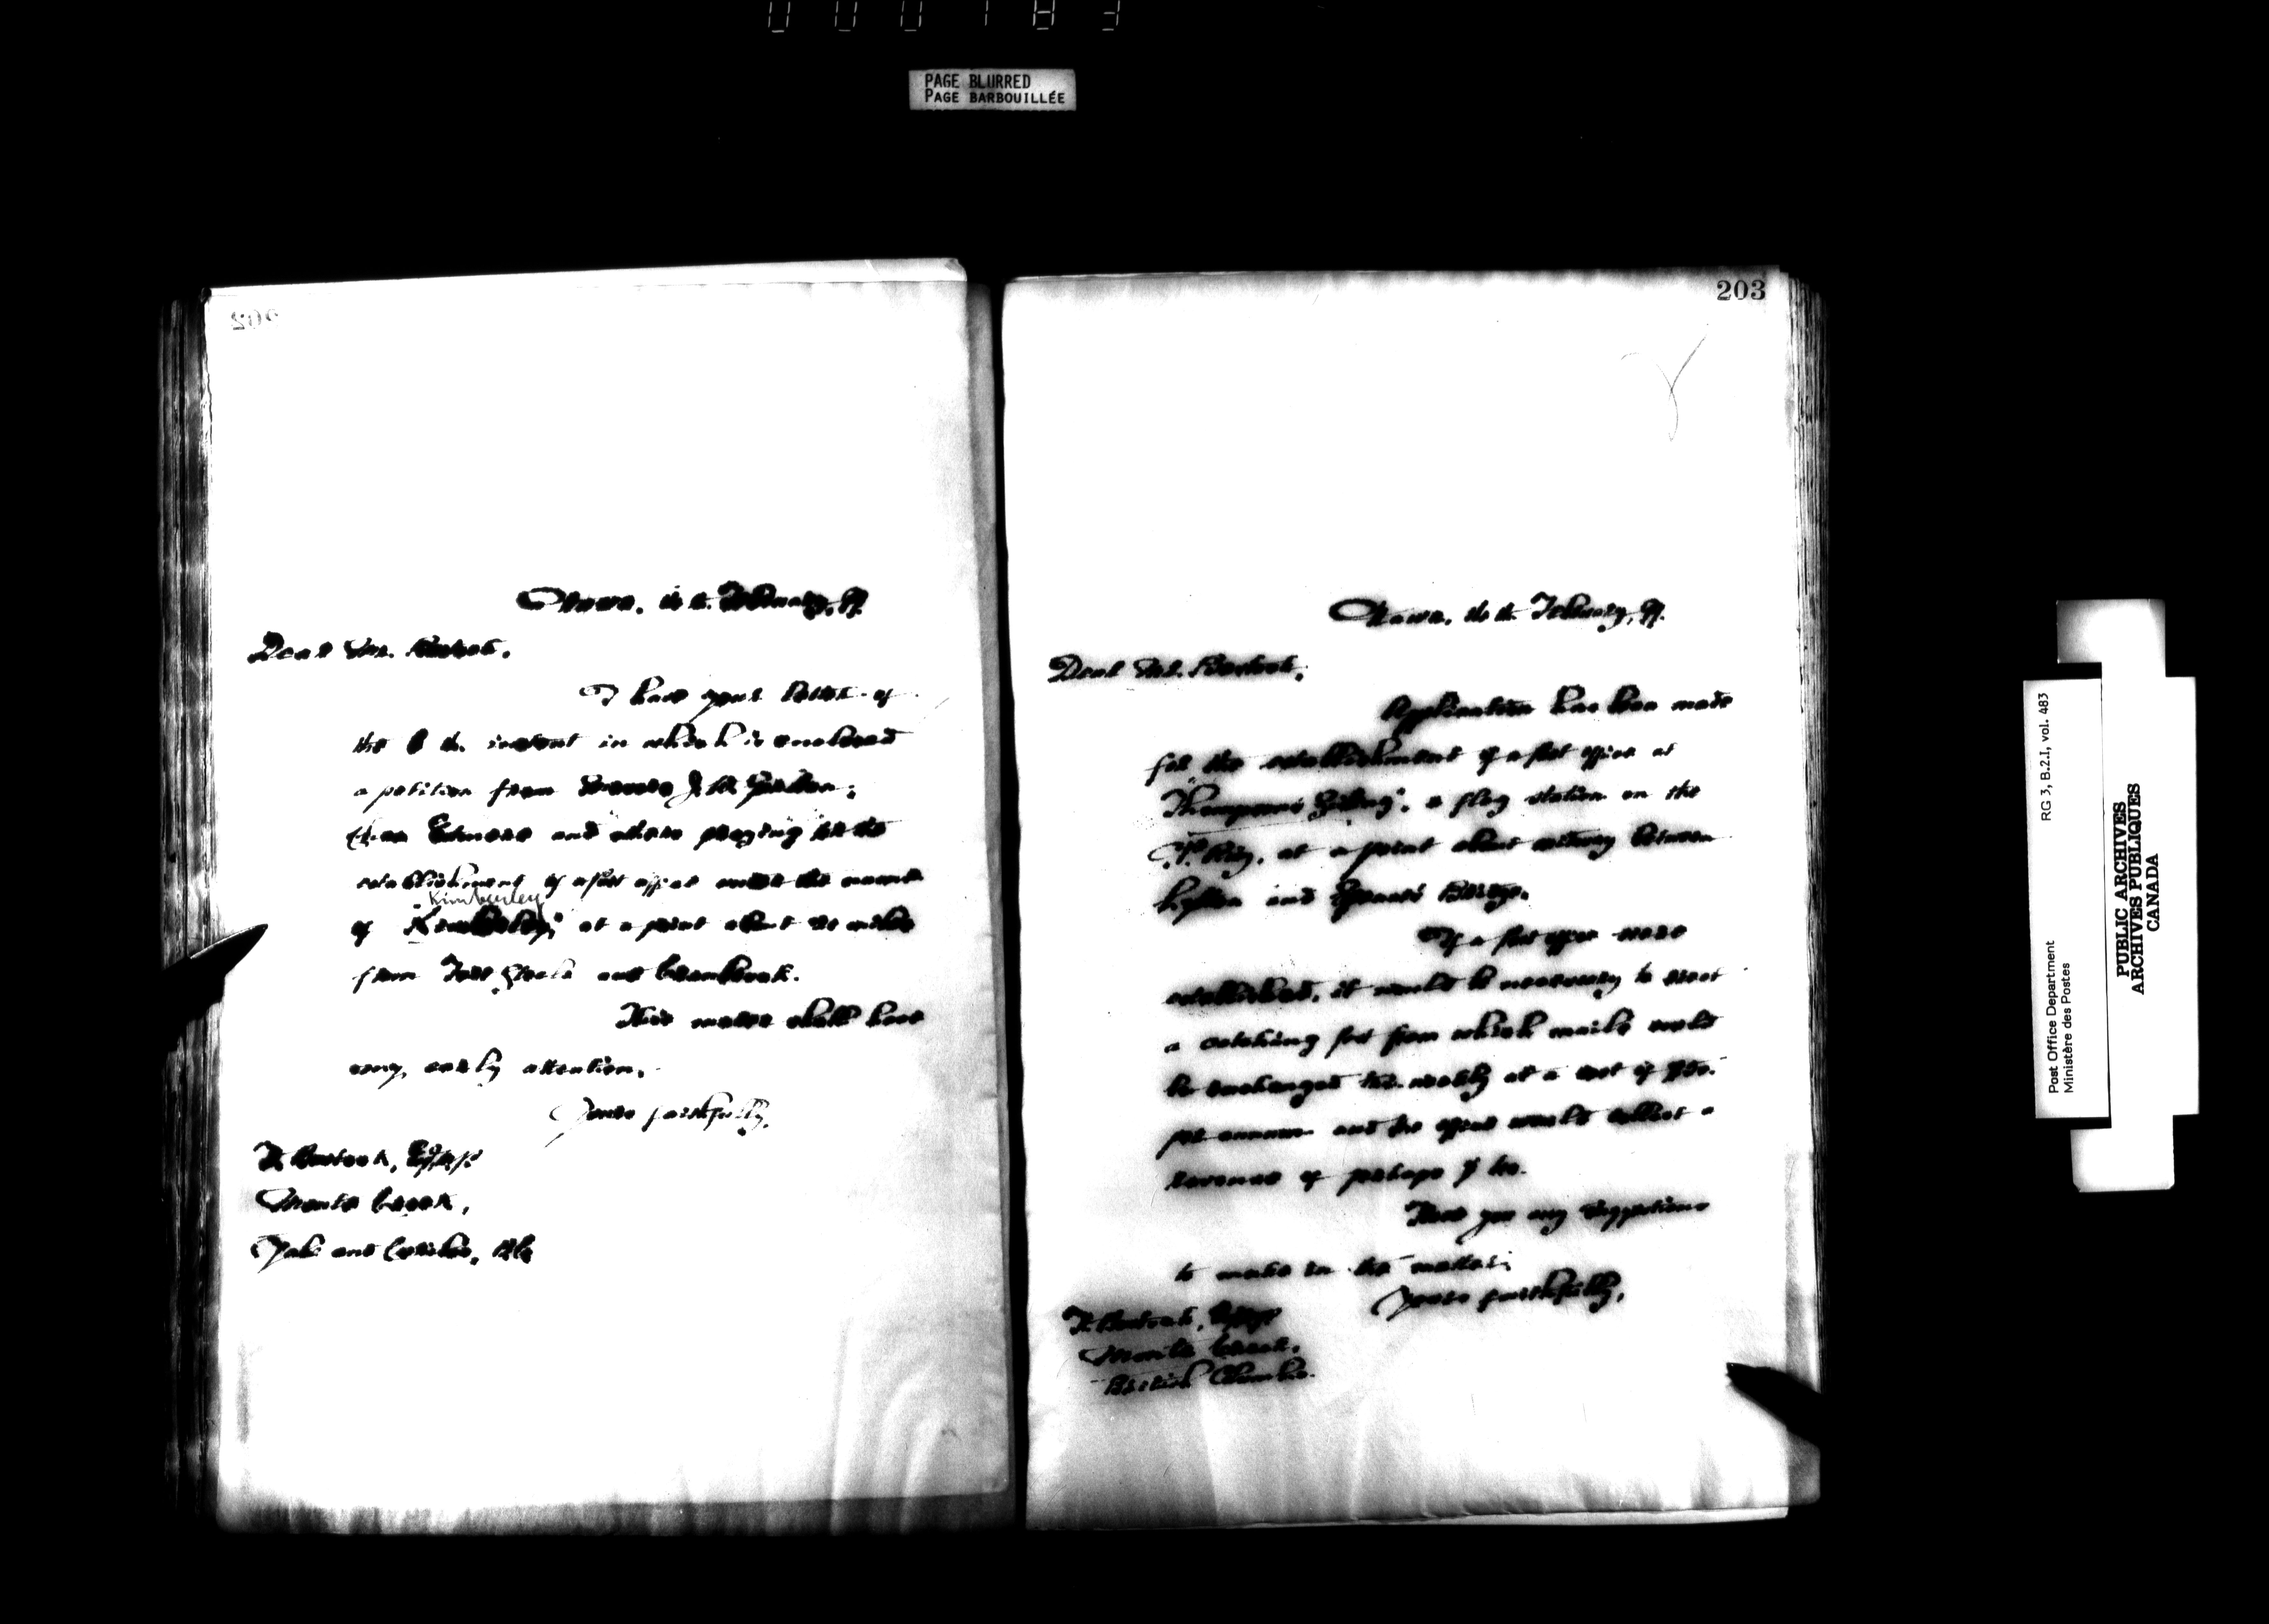 000183
PAGE BLURRED
PAGE BARBOUILLÉE
202
Ottawa, February, 97.
Dear Mr. Bostock,
I have your letter of
the 8th. instant in which is enclosed
a petition from
and others praying for the
establishment of a post office under the name
Kimberley
of "Kimberley", at a point about 20 miles
from Fort Steele and Cranbrook.
This matter shall have
very early attention.
Yours faithfully,
H. Bostock, Esq., M.P.
Monte Creek,
Yale and Cariboo, B.C.
203
Ottawa, February, 97.
Dear Mr. Bostock,
Application has been made
for the establishment of a post office at
"Thompson's Siding", a flag station on the
C.P. Rly, at a point about midway between
Lytton and Spence's Bridge.
If a post office were
established, it would be necessary to erect
a catching post from which mails could
be exchanged tri-weekly at a cost of
per annum and the office would collect a
revenue of perhaps
Have you any suggestions
to make in the matter?
Yours faithfully,
H. Bostock, Esq., M.P.
Monte Creek,
British Columbia.
RG 3, B.2.I, vol. 483
Post Office Department
Ministère des Postes
PUBLIC ARCHIVES
ARCHIVES PUBLIQUES
CANADA